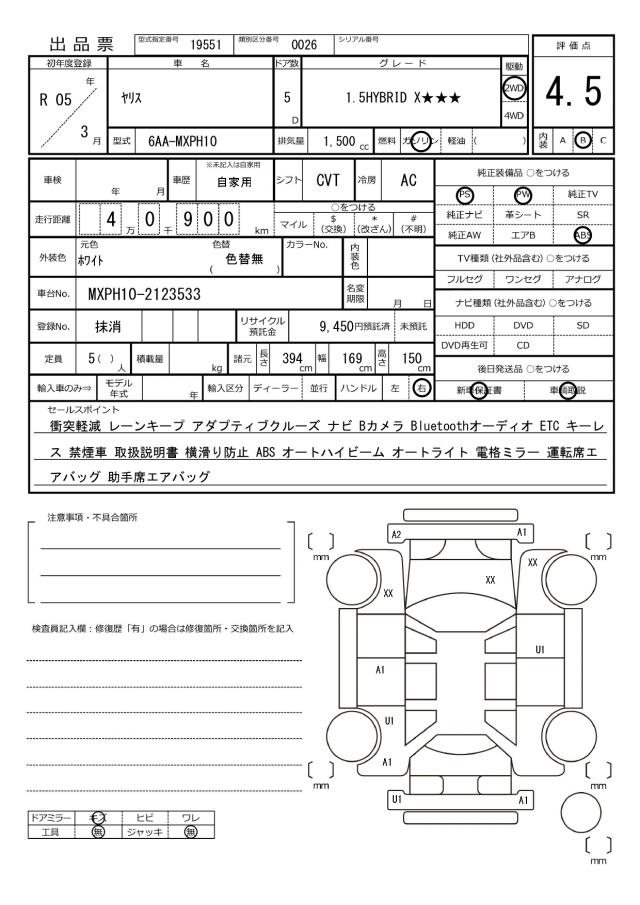 出品票 型式指定番号 19551 類別区分番号 0026 シリアル番号
評価点
4.5
内装 A B C
初年度登録 車名 ドア数 グレード 駆動
R 05 年 3 月 ヤリス 5 D 1.5HYBRID X★★★ 2WD
4WD
型式 6AA-MXPH10 排気量 1,500 cc 燃料 ガソリン 軽油 ( )
車検 年 月 車歴 ※未記入は自家用 自家用 シフト CVT 冷房 AC
走行距離 4 万 0 千 9 0 0 km ○をつける
マイル $ (交換) * (改ざん) # (不明)
外装色 元色 ホワイト 色替 ( 色替無 ) カラーNo. 内装色
車台No. MXPH10-2123533 名変期限 月 日
登録No. 抹消 リサイクル預託金 9,450円預託済 未預託
定員 5( )人 積載量 kg 諸元 長さ 394 cm 幅 169 cm 高さ 150 cm
輸入車のみ⇒ モデル年式 年 輸入区分 ディーラー 並行 ハンドル 左 右
純正装備品 ○をつける
PS PW 純正TV
純正ナビ 革シート SR
純正AW エアB ABS
TV種類(社外品含む)○をつける
フルセグ ワンセグ アナログ
ナビ種類(社外品含む)○をつける
HDD DVD SD
DVD再生可 CD
後日発送品 ○をつける
新車保証書 車輌取説
セールスポイント
衝突軽減 レーンキープ アダプティブクルーズ ナビ Bカメラ Bluetoothオーディオ ETC キーレ
ス 禁煙車 取扱説明書 横滑り防止 ABS オートハイビーム オートライト 電格ミラー 運転席エ
アバッグ 助手席エアバッグ
注意事項・不具合箇所
検査員記入欄：修復歴「有」の場合は修復箇所・交換箇所を記入
ドアミラー キズ ヒビ ワレ
工具 無 ジャッキ 無
A2 A1
[ ] mm [ ] mm
XX
XX XX
U1
A1
U1
A1
[ ] mm [ ] mm
U1 A1
[ ] mm